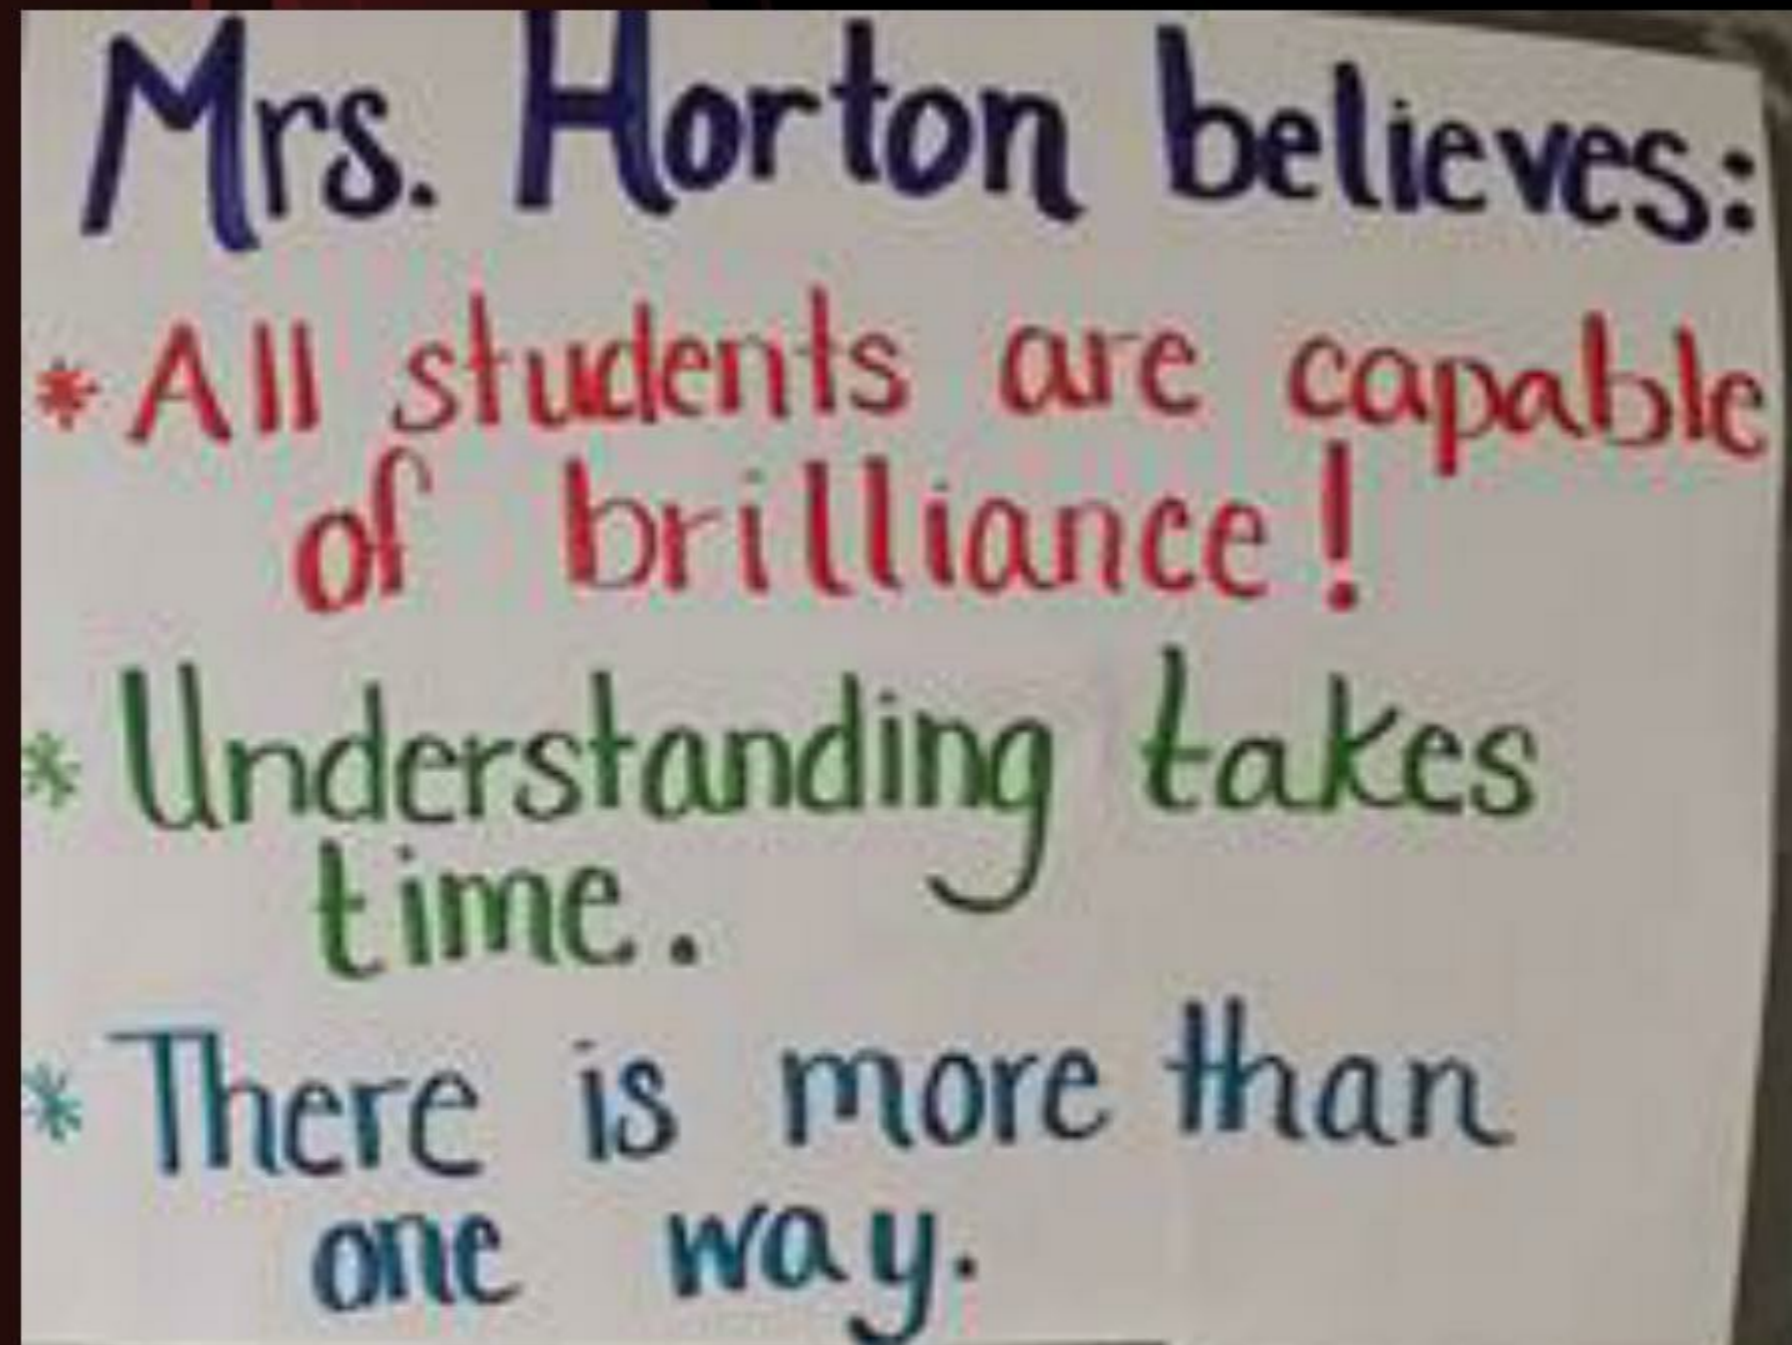 Mrs. Horton believes:
* All students are capable
of brilliance!
* Understanding takes
time.
* There is more than
one way.